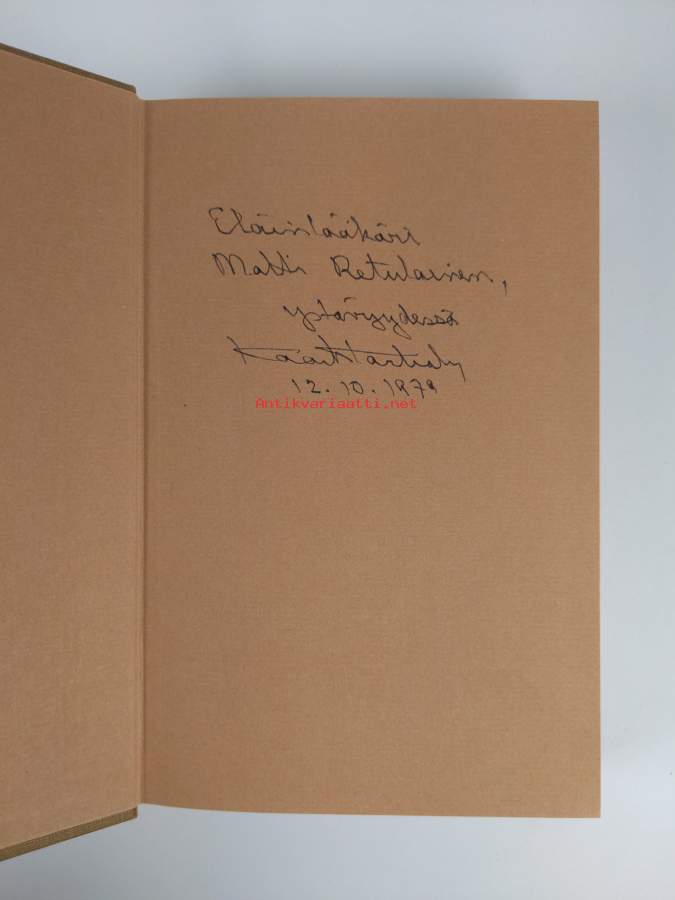 Eläinlääkäri
Matti Retulainen,
ystävyydessä
Kaari Hartiala
12.10.1979
Antikvariaatti.net